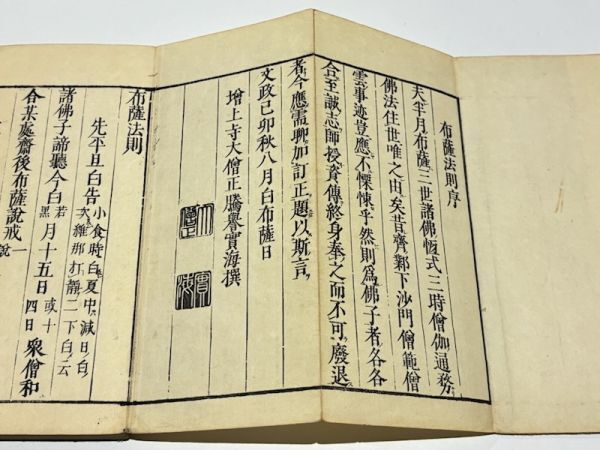 布薩法則序
夫半月布薩三世諸佛恆式三時僧伽通務
佛法住世唯之由矣昔齊鄴下沙門僧範僧
雲事迹豈應不慄悚乎然則爲佛子者各各
合至誠志師授資傳終身奉之而不可廢退
者今應需聊加訂正題以斯言
文政己卯秋八月白布薩日
增上寺大僧正騰譽實海撰
布薩法則
先平旦白告小食時白夏中減日白
次維那打靜二下白云
諸佛子諦聽今白若黑月十五日或十四日衆僧和
合某處齋後布薩說戒一說